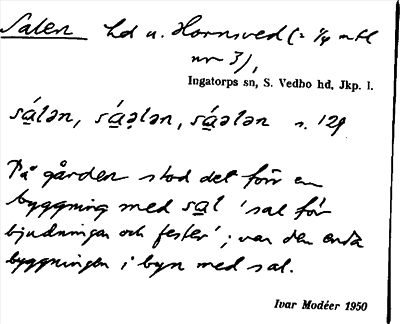 Salen hd u. Hornsved (= 1/4 mtl
nr 3),
Ingatorps sn, S. Vedbo hd, Jkp. l.
sá̱lən, sá̱ə̣lən, sá̱ələn s. 129
På gården stod det förr en
byggning med sa̱l 'sal för
bjudningar och fester'; var den enda
byggningen i byn med sal.
Ivar Modéer 1950